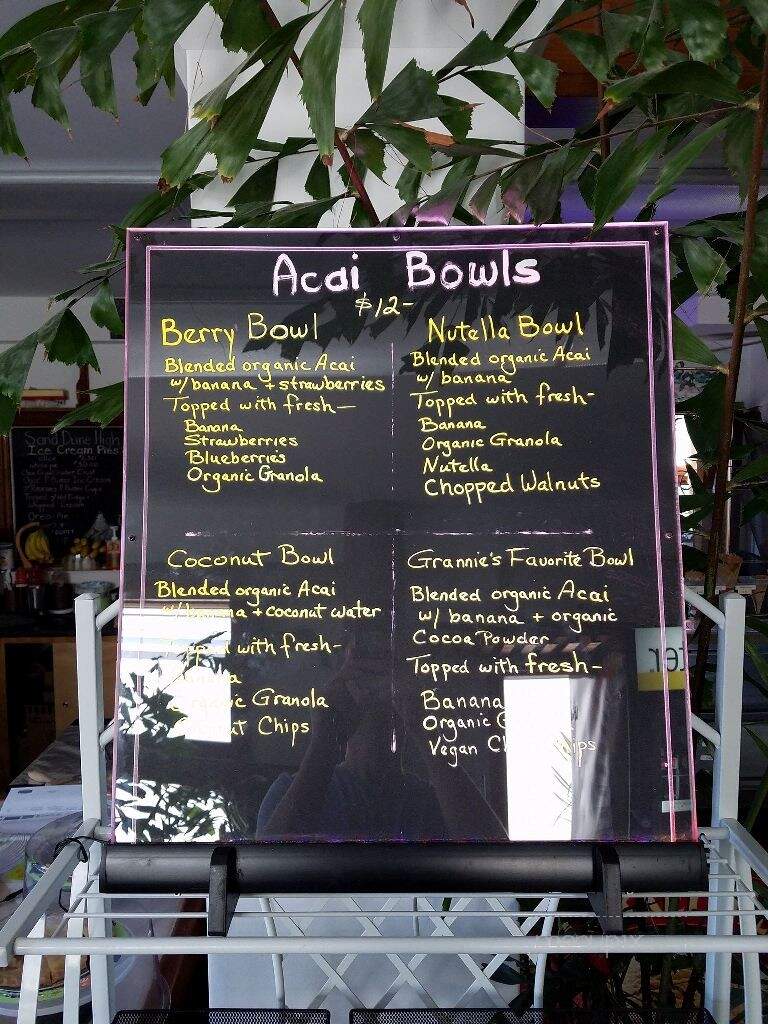 Acai Bowls
$12-
Berry Bowl
Blended organic Acai
w/ banana + strawberries
Topped with fresh—
Banana
Strawberries
Blueberries
Organic Granola
Nutella Bowl
Blended organic Acai
w/ banana
Topped with fresh-
Banana
Organic Granola
Nutella
Chopped Walnuts
Coconut Bowl
Blended organic Acai
w/ banana + coconut water
Topped with fresh-
Banana
Organic Granola
Chips
Grannie's Favorite Bowl
Blended organic Acai
w/ banana + organic
Cocoa Powder
Topped with fresh—
Banana
Organic
Vegan
Sand Dune High
Ice Cream Pies